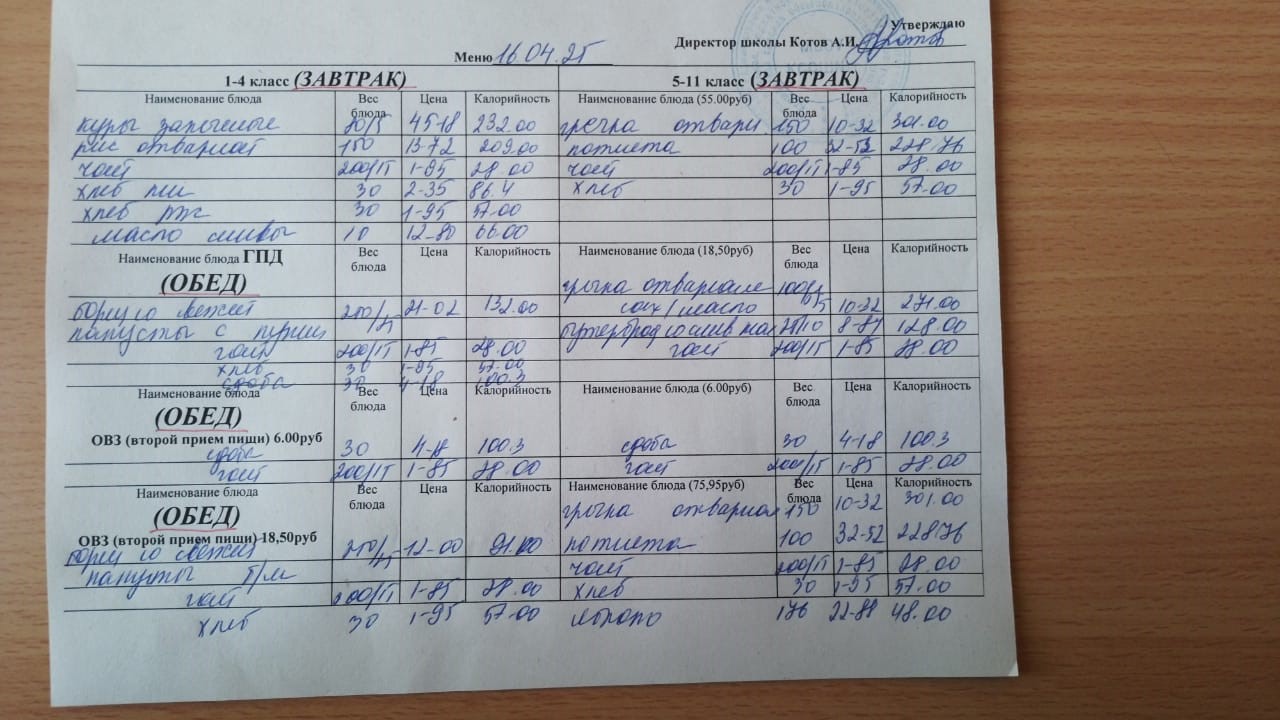 Утверждаю
Директор школы Котов А.И.
Меню 16.04.25
1-4 класс (ЗАВТРАК) 5-11 класс (ЗАВТРАК)
Наименование блюда Вес блюда Цена Калорийность Наименование блюда (55.00руб) Вес блюда Цена Калорийность
куры запеченые 80/5 45-18 232.00 гречка отварн 150 10-32 301.00
рис отварной 150 13-72 209.00 котлета 100 32-52 228.76
чай 200/15 1-85 28.00 чай 200/15 1-85 28.00
хлеб пш 30 2-35 86.4 хлеб 30 1-95 57.00
хлеб рж 30 1-95 57.00
масло сливоч 10 12-80 66.00
Наименование блюда ГПД Вес блюда Цена Калорийность Наименование блюда (18,50руб) Вес блюда Цена Калорийность
(ОБЕД) гречка отварная 100/
борщ со свежей 250/25 21-02 132.00 масло 10-32 271.00
капусты с курин бутерброд со слив мас 8-84 128.00
чай 200/15 1-85 28.00 чай 200/15 1-85 28.00
хлеб 30 1-95 57.00
сдоба 30 4-18 100.3
Наименование блюда Вес блюда Цена Калорийность Наименование блюда (6.00руб) Вес блюда Цена Калорийность
(ОБЕД)
ОВЗ (второй прием пищи) 6.00руб
сдоба 30 4-18 100.3 сдоба 30 4-18 100.3
чай 200/15 1-85 28.00 чай 200/15 1-85 28.00
Наименование блюда Вес блюда Цена Калорийность Наименование блюда (75,95руб) Вес блюда Цена Калорийность
(ОБЕД) гречка отварная 150 10-32 301.00
ОВЗ (второй прием пищи) 18,50руб
борщ со свежей 250/ 12-00 91.00 котлета 100 32-52 228.76
капусты р/м чай 200/15 1-85 28.00
чай 200/15 1-85 28.00 хлеб 30 1-95 57.00
хлеб 30 1-95 57.00 яблоко 176 22-88 48.00